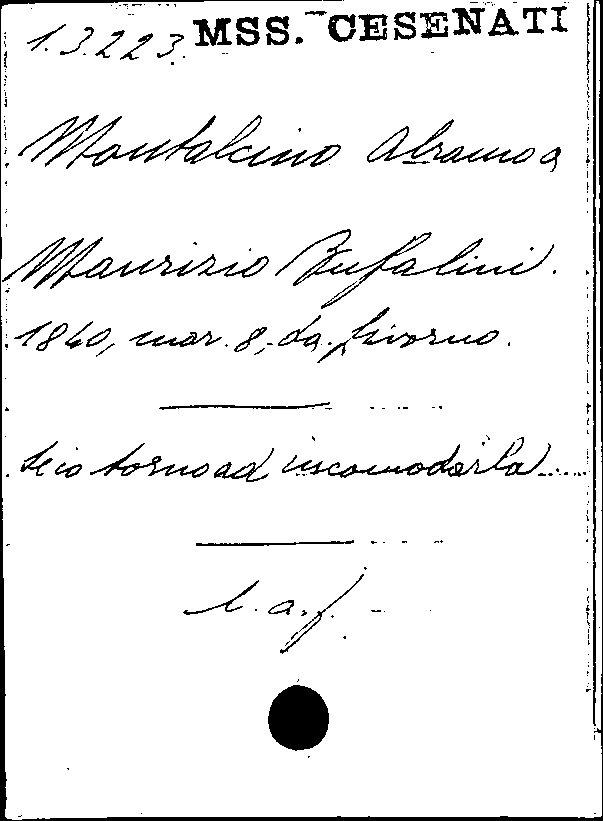 1.3.223. MSS. CESENATI
Montalcino Abramo a
Maurizio Bufalini.
1840, mar. 8, da Livorno.
Se io torno ad incomodarla.....
l. a. f.